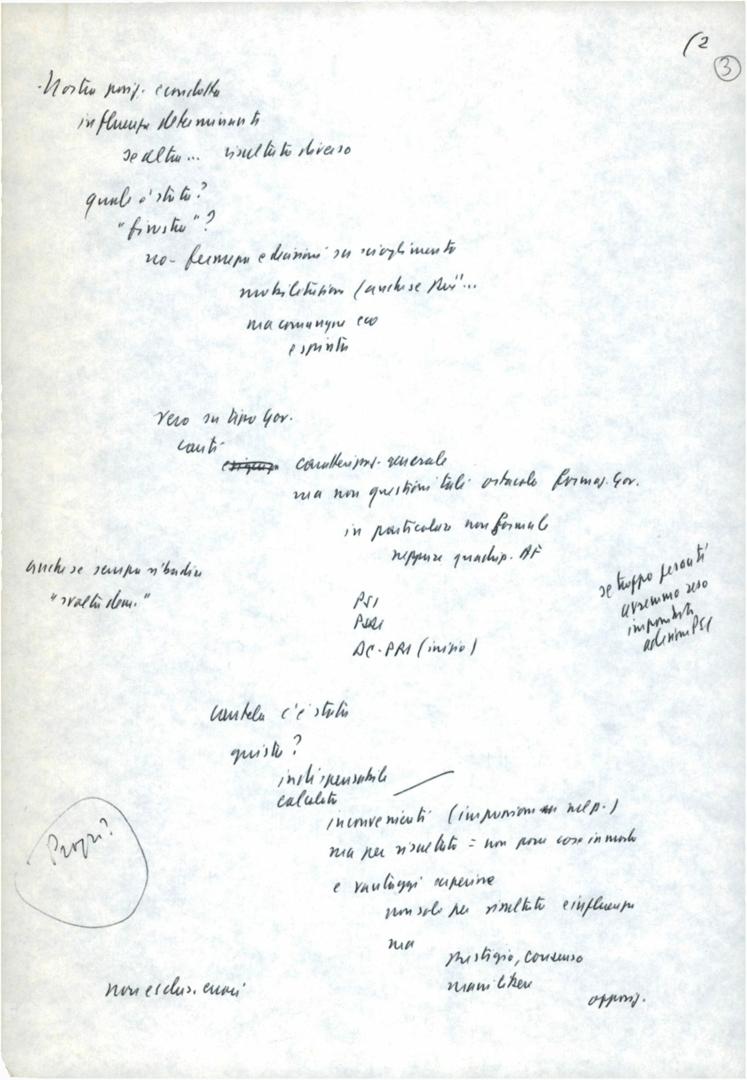 (2
3
- Nostra posiz. e condotta
influenza determinante
se altra... risultato diverso
qual è stato?
"finestra"?
no - fermezza e decisioni su scioglimento
mobilitazione (anche se Rai"...
ma comunque eco
e spinta
vero su tipo Gov.
cauti
caratterizz. generale
ma non questioni tali ostacolo formaz. Gov.
in particolare non formale
neppure quadrip. AF
anche se sempre ribadita
"svolta dem."
se troppo pesanti
avremmo reso
impossibile
adesione PSI
PSI
PSDI
DC-PRI (inizio)
cautela c'è stata
giusta?
indispensabile
calcolata
inconvenienti (impressione neg.)
ma per risultato = non poche cose in modo
e vantaggi superiore
non solo per risultato e influenza
ma
prestigio, consenso
mani libere
opposiz.
Prezzi?
non esclus. errori